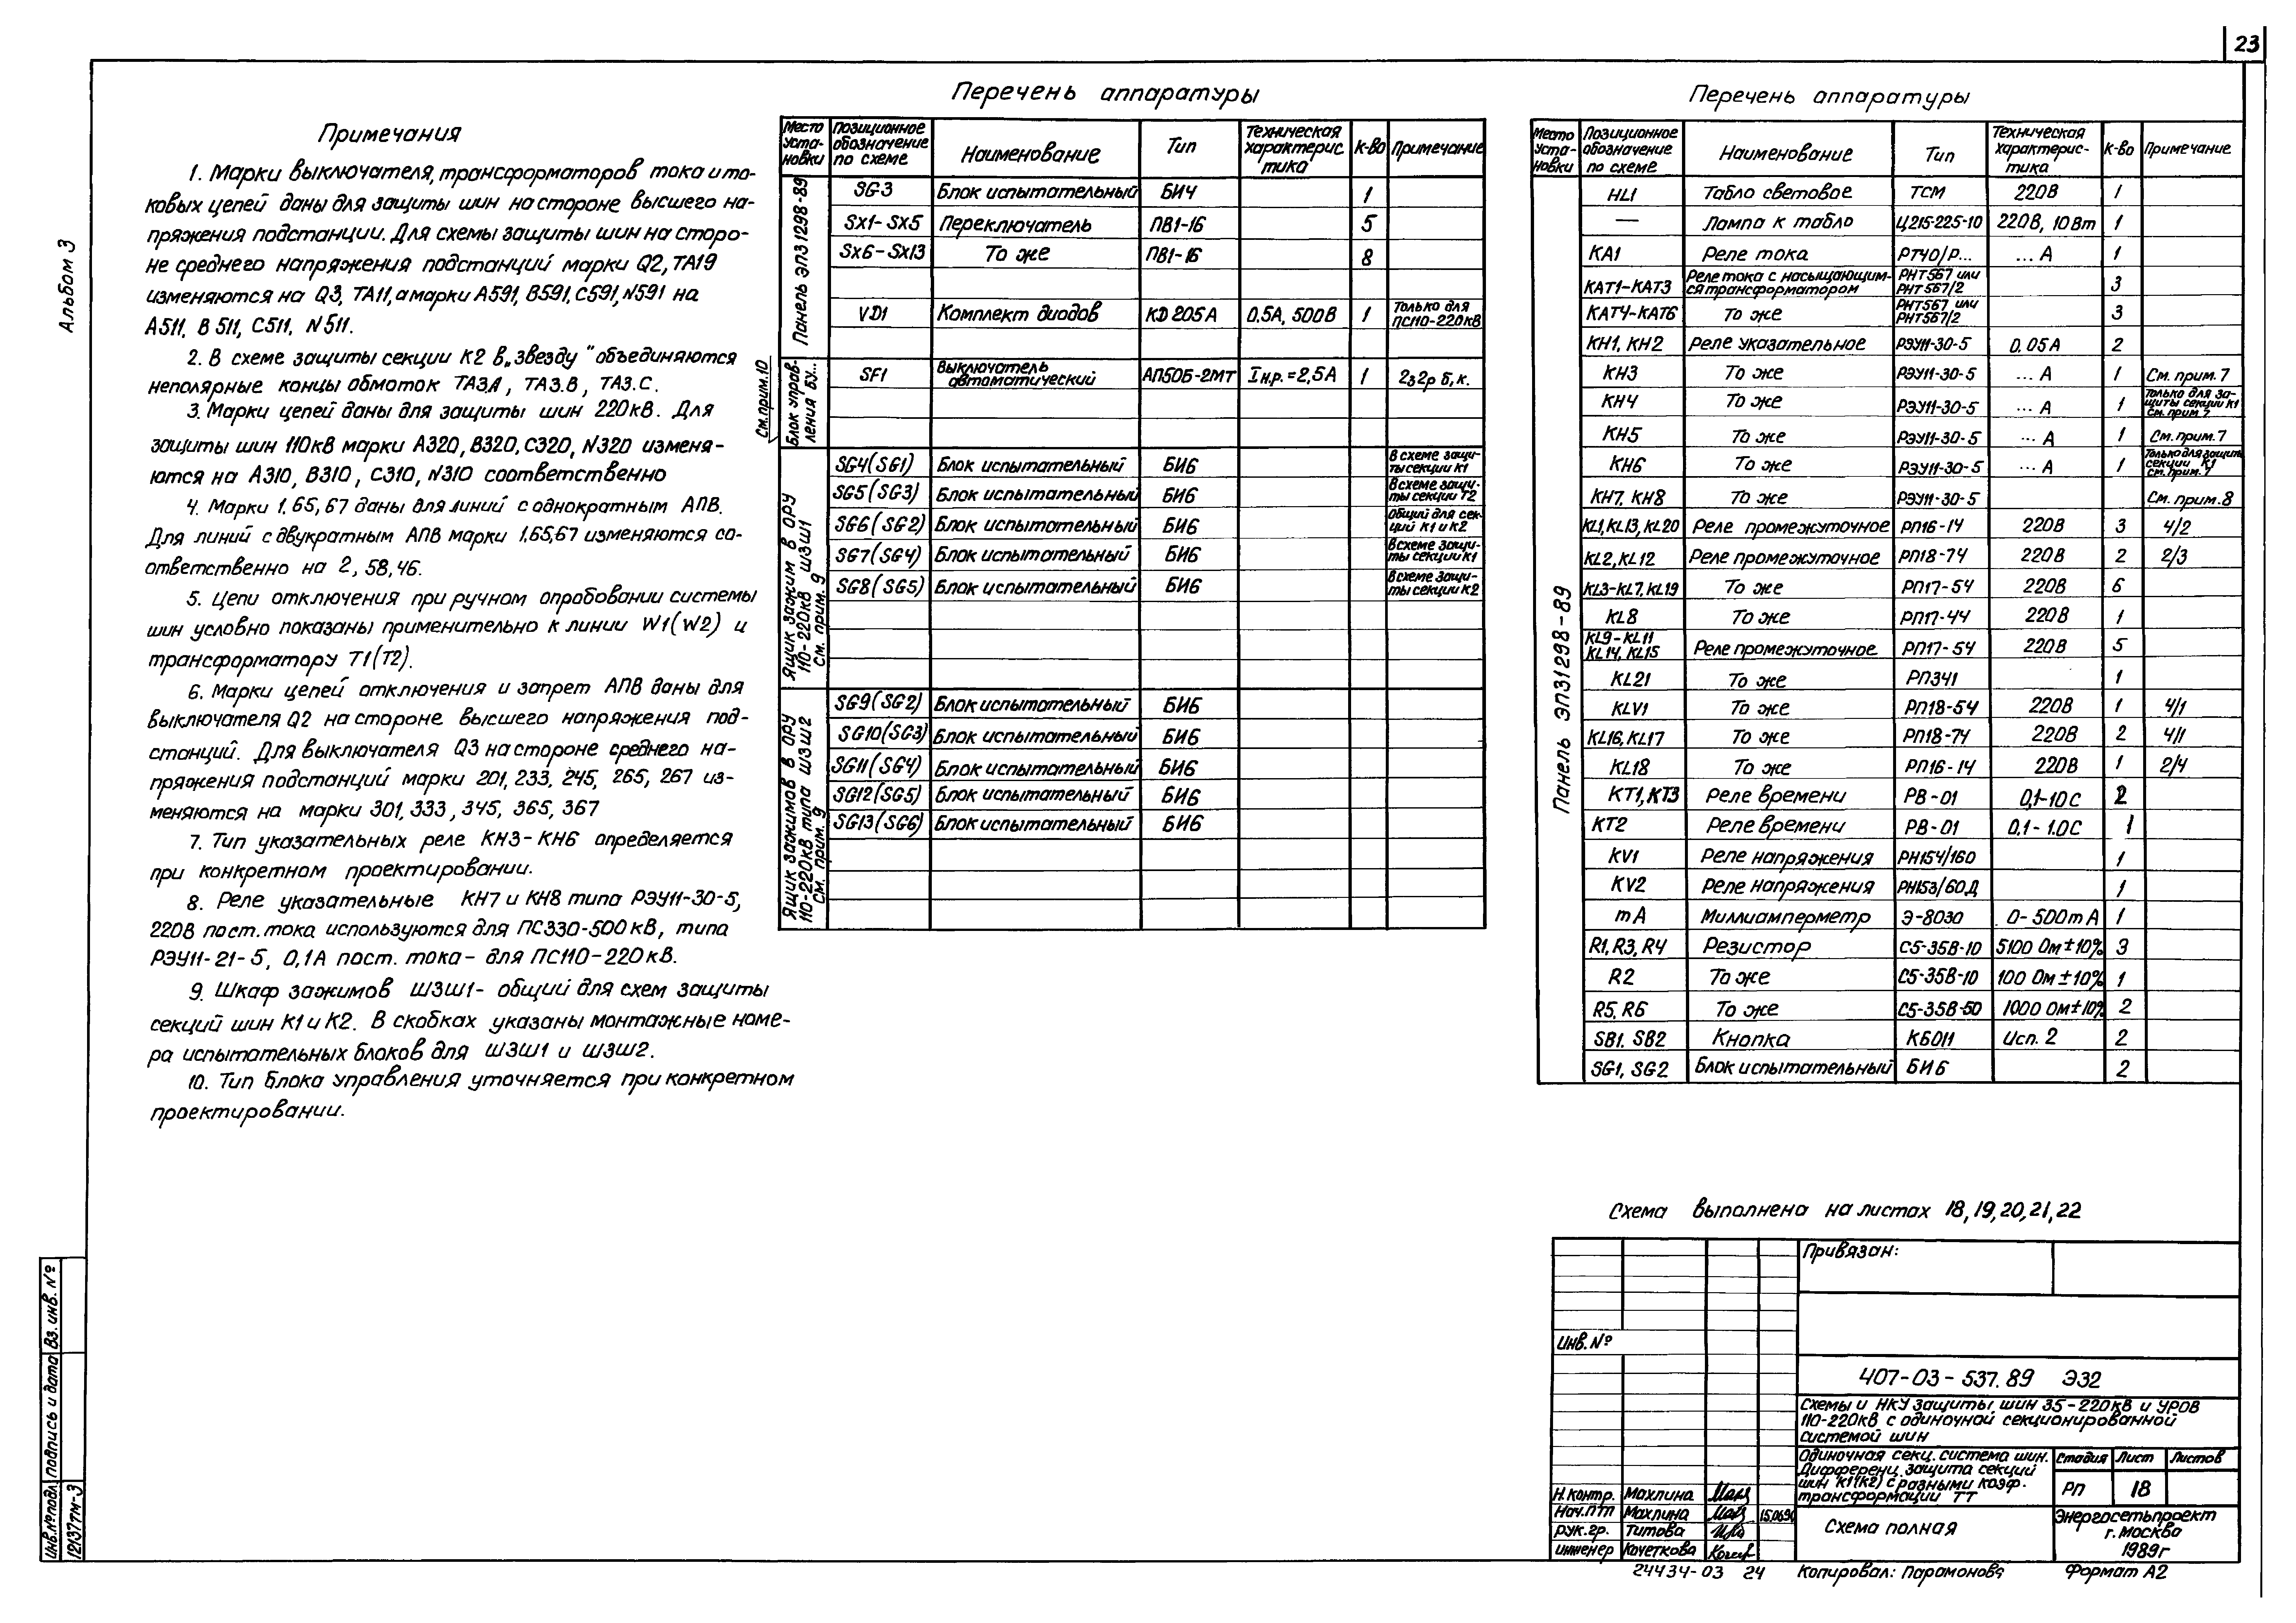 23
Альбом 3
Примечания
1. Марки выключателя, трансформаторов тока и то-
ковых цепей даны для защиты шин на стороне высшего на-
пряжения подстанции. Для схемы защиты шин на сторо-
не среднего напряжения подстанций марки Q2, ТА19
изменяются на Q3, ТА11, а марки А591, В591, С591, N591 на
А511, В 511, С511, N 511.
2. В схеме защиты секции К2 в „звезду" объединяются
неполярные концы обмоток ТА3.А, ТА3.В, ТА3.С.
3. Марки цепей даны для защиты шин 220кВ. Для
защиты шин 110кВ марки А320, В320, С320, N320 изменя-
ются на А310, В310, С310, N310 соответственно
4. Марки 1, 65, 67 даны для линий с однократным АПВ.
Для линий с двукратным АПВ марки 1,65,67 изменяются со-
ответственно на 2, 58, 46.
5. Цепи отключения при ручном опробовании системы
шин условно показаны применительно к линии W1(W2) и
трансформатору Т1(Т2).
6. Марки цепей отключения и запрет АПВ даны для
выключателя Q2 на стороне высшего напряжения под-
станций. Для выключателя Q3 на стороне среднего на-
пряжения подстанций марки 201, 233, 245, 265, 267 из-
меняются на марки 301, 333, 345, 365, 367
7. Тип указательных реле КН3-КН6 определяется
при конкретном проектировании.
8. Реле указательные КН7 и КН8 типа РЭУ11-30-5,
220В пост. тока используются для ПС330-500кВ, типа
РЭУ11-21-5, 0,1А пост. тока - для ПС110-220кВ.
9. Шкаф зажимов ШЗШ1- общий для схем защиты
секций шин К1 и К2. В скобках указаны монтажные номе-
ра испытательных блоков для ШЗШ1 и ШЗШ2.
10. Тип блока управления уточняется при конкретном
проектировании.
Перечень аппаратуры
Место уста-новки Позиционное обозначение по схеме Наименование Тип Техническая характерис тика К-во Примечание
Панель ЭПЗ1298-89
SG3 Блок испытательный БИ4 1
SX1-SX5 Переключатель ПВ1-16 5
SX6-SX13 То же ПВ1-16 8
VD1 Комплект диодов КД 205А 0.5А, 500В 1 Только для ПС110-220кВ
См.прим.10
Блок управ-ления БУ...
SF1 Выключатель автоматический АП50Б-2МТ Iн.р.=2,5А 1 2з2р б,к.
Ящик зажим в ОРУ 110-220кВ ШЗШ1 См. прим. 9
SG4(SG1) Блок испытательный БИ6 В схеме защи-ты секции К1
SG5(SG3) Блок испытательный БИ6 В схеме защи-ты секции Т2
SG6(SG2) Блок испытательный БИ6 Общий для сек-ций К1 и К2
SG7(SG4) Блок испытательный БИ6 В схеме защи-ты секции К1
SG8(SG5) Блок испытательный БИ6 В схеме защи-ты секции К2
Ящик зажимов в ОРУ 110-220кВ типа ШЗШ2 См. прим. 9
SG9(SG2) Блок испытательный БИ6
SG10(SG3) Блок испытательный БИ6
SG11(SG4) Блок испытательный БИ6
SG12(SG5) Блок испытательный БИ6
SG13(SG6) Блок испытательный БИ6
Перечень аппаратуры
Место уста-новки Позиционное обозначение по схеме Наименование Тип Техническая характерис-тика К-во Примечание
Панель ЭПЗ1298-89
HL1 Табло световое ТСМ 220В 1
— Лампа к табло Ц215-225-10 220В, 10Вт 1
КА1 Реле тока РТ40/Р... ... А 1
КАТ1-КАТ3 Реле тока с насыщающим-ся трансформатором РНТ567 или РНТ567/2 3
КАТ4-КАТ6 То же РНТ567 или РНТ567/2 3
КН1, КН2 Реле указательное РЭУ11-30-5 0,05А 2
КН3 То же РЭУ11-30-5 ... А 1 См. прим. 7
КН4 То же РЭУ11-30-5 ... А 1 Только для за-щиты секции К1 см. прим. 7
КН5 То же РЭУ11-30-5 ... А 1 См. прим. 7
КН6 То же РЭУ11-30-5 ... А 1 Только для защиты секции К1 см. прим. 7
КН7, КН8 То же РЭУ11-30-5 См. прим. 8
KL1, KL13, KL20 Реле промежуточное РП16-14 220В 3 4/2
KL2, KL12 Реле промежуточное РП18-74 220В 2 2/3
KL3-KL7, KL19 То же РП17-54 220В 6
KL8 То же РП17-44 220В 1
KL9-KL11 KL14, KL15 Реле промежуточное РП17-54 220В 5
KL21 То же РП341 1
KLV1 То же РП18-54 220В 1 4/1
KL16, KL17 То же РП18-74 220В 2 4/1
KL18 То же РП16-14 220В 1 2/4
КТ1, КТ3 Реле времени РВ-01 0,1-10С 2
КТ2 Реле времени РВ-01 0,1-1.0С 1
KV1 Реле напряжения РН154/160 1
KV2 Реле напряжения РН153/60Д 1
mA Миллиамперметр Э-8030 0-500mA 1
R1, R3, R4 Резистор С5-35В-10 5100 Ом±10% 3
R2 То же С5-35В-10 100 Ом±10% 1
R5, R6 То же С5-35В-50 1000 Ом±10% 2
SB1. SB2 Кнопка КБ011 Исп. 2 2
SG1, SG2 Блок испытательный БИ6 2
Схема выполнена на листах 18, 19, 20, 21, 22
Привязан:
Инв. №
407-03-537.89 ЭЗ2
Схемы и НКУ защиты шин 35-220кВ и УРОВ
110-220кВ с одиночной секционированной
системой шин
Одиночная секц. система шин.
Дифференц. защита секций
шин К1(К2) с разными коэф.
трансформации ТТ
Стадия Лист Листов
РП 18
Схема полная
Энергосетьпроект
г. Москва
1989г
Н.контр. Махлина
Нач.ПТП Махлина 15.06.90
рук.гр. Титова
инженер Кочеткова
24434-03 24
Копировал: Парамонова
Формат А2
Инв.№подл. Подпись и дата Вз. инв. №
12137тм-3